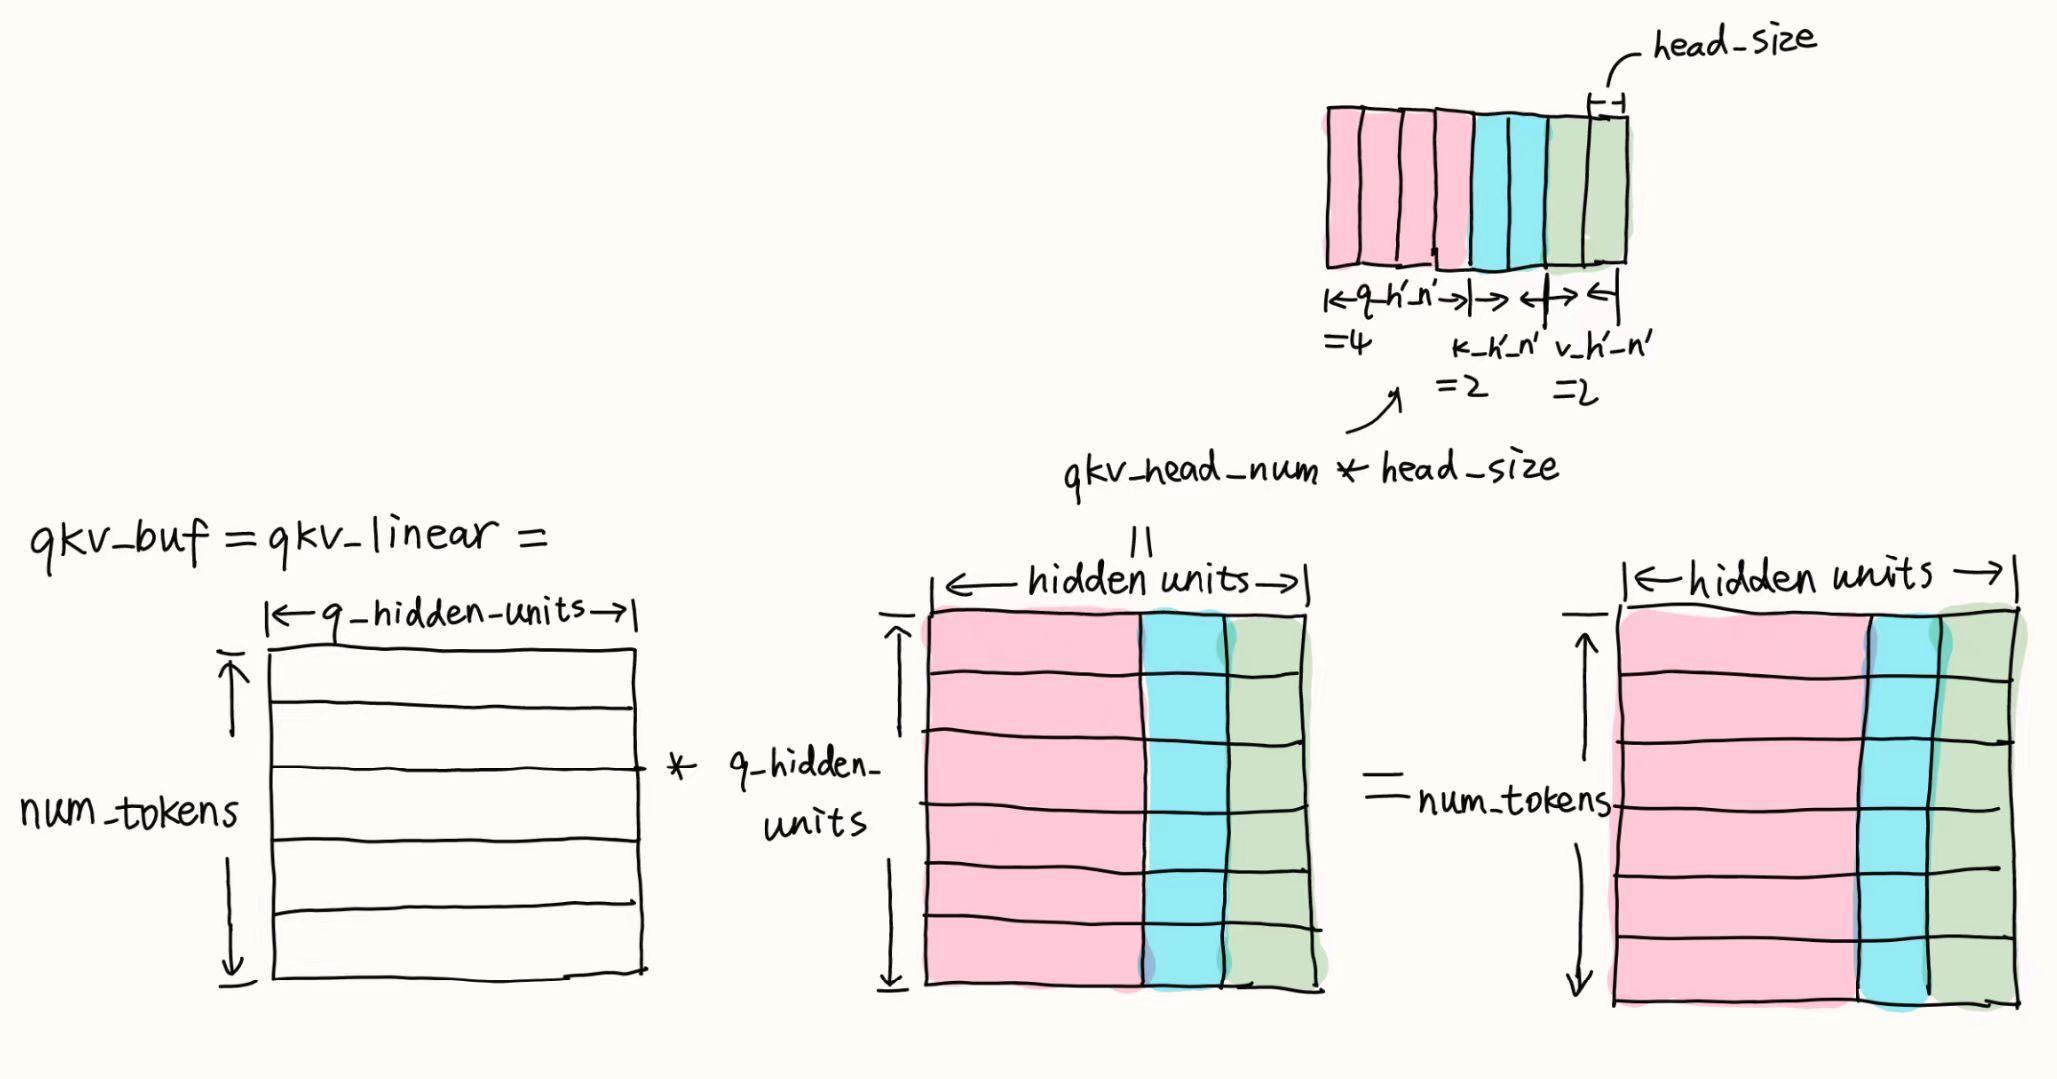 head_size
q_h'_n'
=4
k_h'_n'
=2
v_h'_n'
=2
qkv_head_num * head_size
||
qkv_buf = qkv_linear =
q_hidden_units
num_tokens
*
hidden units
q_hidden_
units
=
hidden units
num_tokens